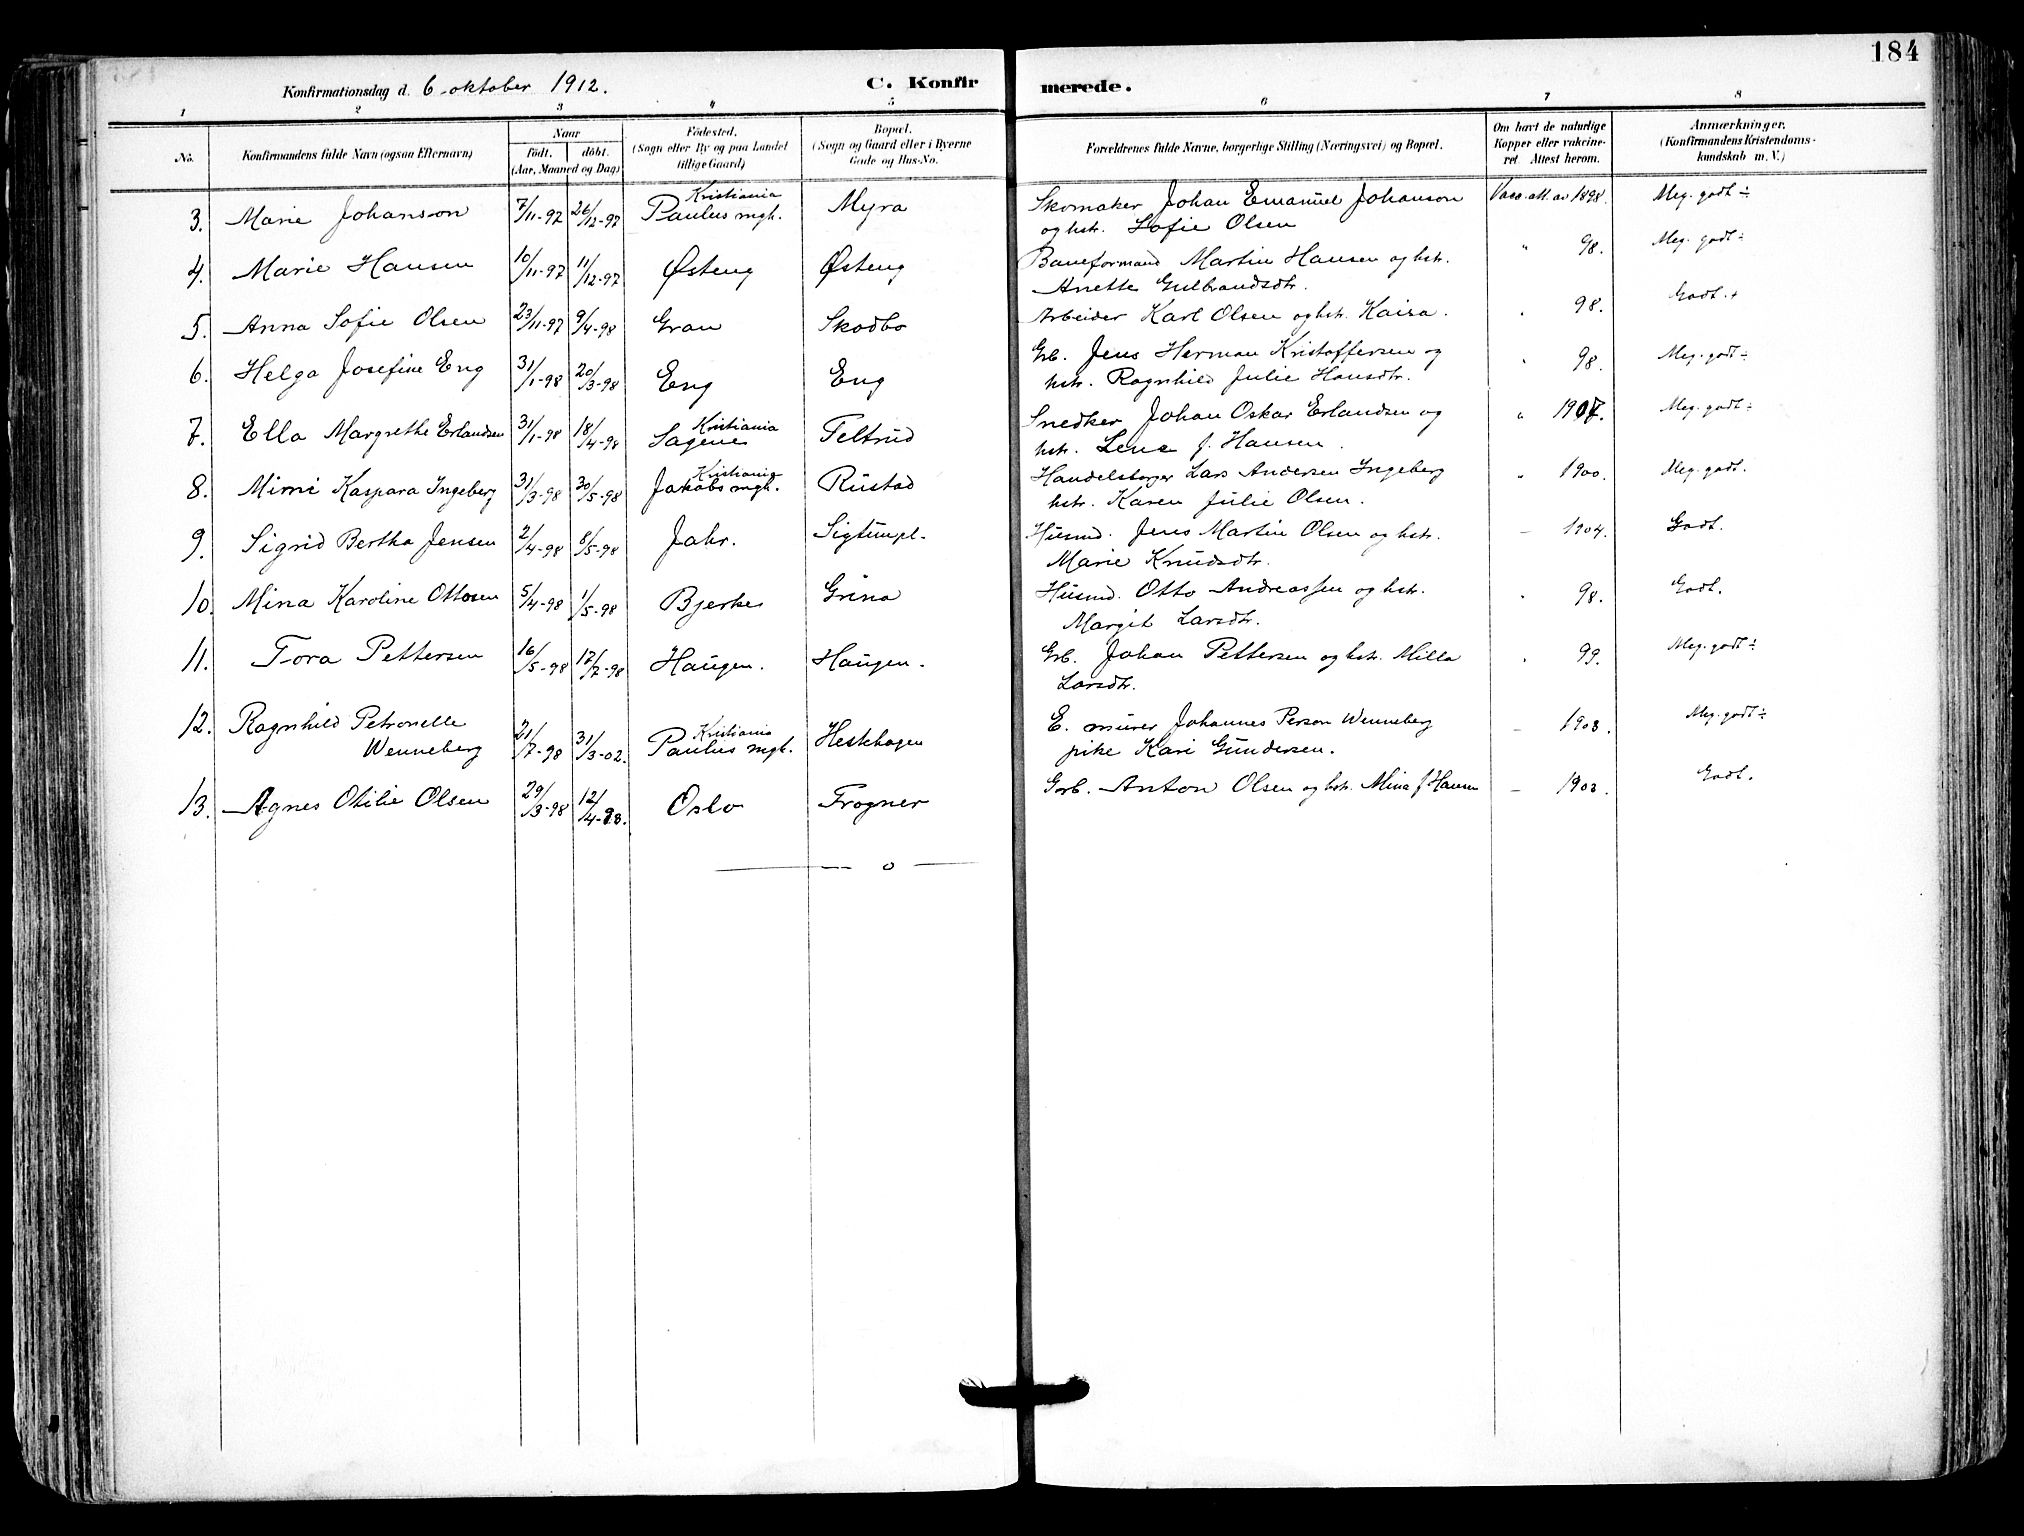 184
Konfirmationsdag d. 6. oktober 1912. C. Konfirmerede.
1 2 3 4 5 6 7 8
No. Konfirmandens fulde Navn (ogsaa Efternavn) Naar født. døbt. (Aar, Maaned og Dag) Fødested. (Sogn eller By og paa Landet tillige Gaard) Bopæl. (Sogn og Gaard eller i Byerne Gade og Hus-No. Forældrenes fulde Navne, borgerlige Stilling (Næringsvei) og Bopæl. Om havt de naturlige Kopper eller vakcineret. Attest herom. Anmærkninger. (Konfirmandens Kristendomskundskab m. V.)
3. Marie Johanson 7/11-97 26/12-97 Kristiania Paulus mgh. Myra Skomaker Johan Emanuel Johanson Vacc. att. av 1898. Meg. godt ÷
og hstr. Sofie Olsen
4. Marie Hansen 10/11-97 11/12-97 Østeng Østeng Baneformand Martin Hansen og hstr. " 98. Meg. godt ÷
Anette Gulbrandsdtr.
5. Anna Sofie Olsen 23/11-97 9/4-98 Gran Skodbo Arbeider Karl Olsen og hst. Kaisa. " 98. Godt. +
6. Helga Josefine Eng 31/1-98 20/3-98 Eng Eng Grb. Jens Herman Kristoffersen og " 98. Meg. godt ÷
hstr. Ragnhild Julie Hansdtr.
7. Ella Margrethe Erlandsen 31/1-98 18/4-98 Kristiania Sagenes Feltrud Snedker Johan Oskar Erlandsen og " 1907. Meg. godt ÷
hstr. Lena J. Hansen.
8. Mimi Kaspara Ingeberg 31/3-98 30/5-98 Kristiania Jakobs mgh. Rustad Handelsborger Lars Andersen Ingeberg " 1900. Meg. godt.
hstr. Karen Julie Olsen.
9. Sigrid Bertha Jensen 2/4-98 8/5-98 Jahr. Sigtunpl. Husmd. Jens Martin Olsen og hstr. – 1904. Godt.
Marie Knudsdtr.
10. Mina Karoline Ottosen 5/4-98 1/5-98 Bjerke Grina Husmd. Otto Andreassen og hstr. " 98. Godt.
Margit Larsdtr.
11. Tora Pettersen 16/5-98 17/7-98 Haugen. Haugen. Grb. Johan Pettersen og hst. Milla " 99. Meg. godt ÷
Larsdtr.
12. Ragnhild Petronelle Wenneberg 21/7-98 31/3-02. Kristiania Paulus mgh. Hestehagen E. murer Johannes Person Wenneberg – 1903. Meg. godt ÷
pike Kari Gundersen.
13. Agnes Otilie Olsen 29/3-98 12/4-98. Oslo Frogner Grb. Anton Olsen og hst. Mina J. Hansen – 1903. Godt.